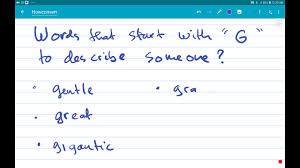 Words that start with "G"
to describe someone?
• gentle
• gra
• great
• gigantic